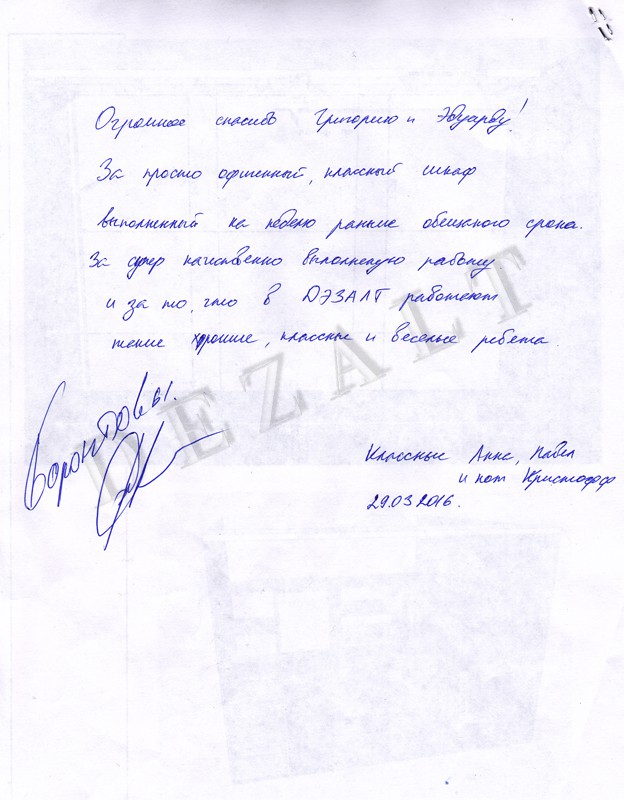 Огромное спасибо Григорию и Эдуарду!
За просто офигенный, классный шкаф
выполненный на неделю раньше обещаного срока.
За супер качественно выполненую работу
и за то, что в ДЭЗАЛТ работают
такие хорошие, классные и веселые ребята.
DEZALT
Воронтовы.
Классные Анна, Павел
и кот Кристофф
29.03.2016.